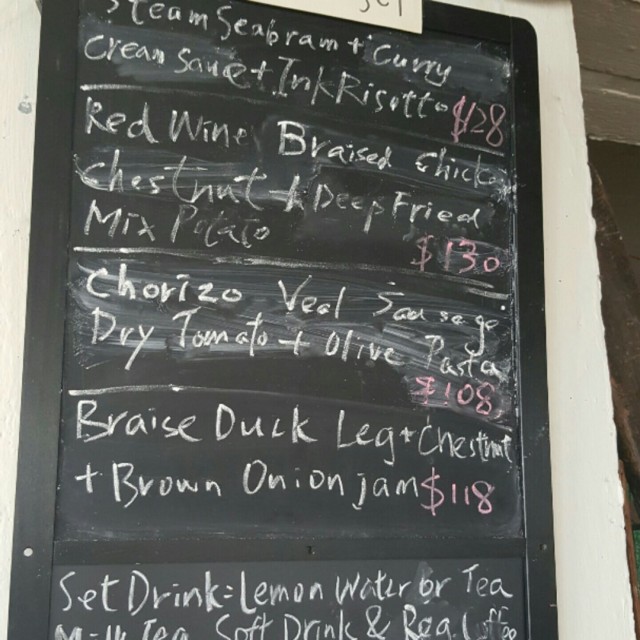 set
Steam Seabram + Curry
Cream Sauce + Ink Risotto $128
Red Wine Braised Chick
Chestnut + Deep Fried
Mix Potato
$130
Chorizo Veal Sausage
Dry Tomato + Olive Pasta
$108
Braise Duck Leg + Chestnut
+ Brown Onion jam $118
Set Drink: Lemon Water or Tea
Milk Tea Soft Drink & Rea Coffee